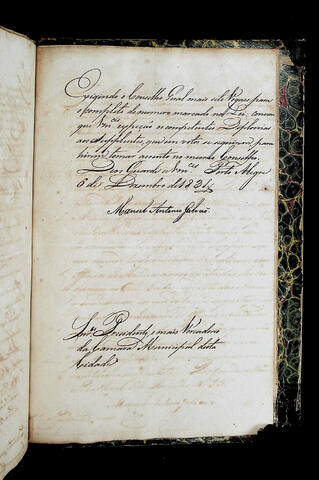 Exigindo o Conselho Geral mais sete Vogaes para
o completo do numero marcado na Lei, convem
que Vm.ces expeção os competentes Diplomas
aos Supplentes, que em votos se seguirem para
hirem tomar assento no mesmo Conselho.
Deos Guarde a Vm.ces Porto Alegre
6 de Dezembro de 1831
Manoel Antonio Galvão
Snr.es Presidente, e mais Vereadores
da Camara Municipal desta
Cidade